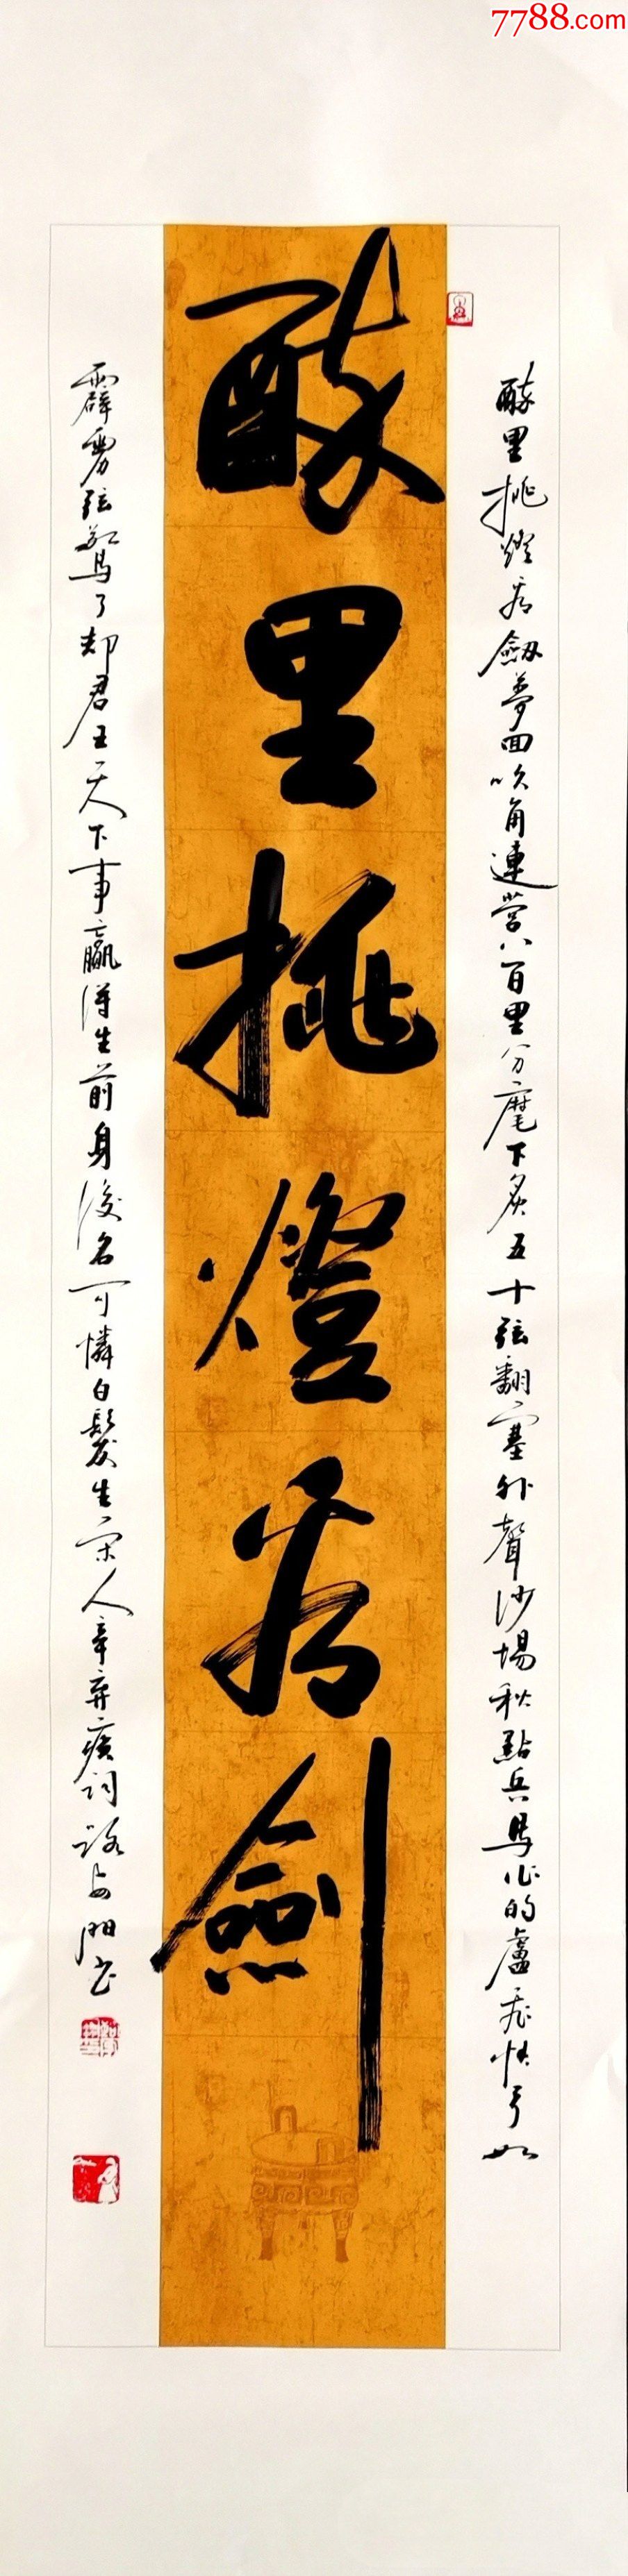 7788.com
醉里挑燈看劍
醉里挑燈看劒夢回吹角連營八百里分麾下炙五十弦翻塞外聲沙場秋點兵馬作的盧飛快弓如
霹雳弦驚了却君王天下事贏得生前身後名可憐白髮生宋人辛弃疾词